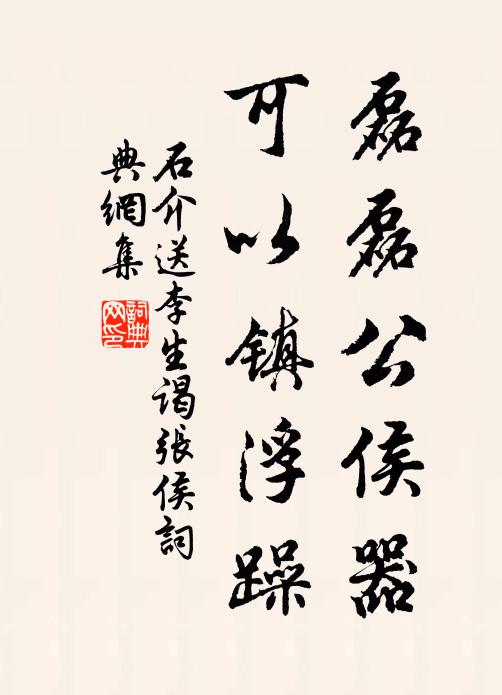 磊磊公侯器
可以镇浮躁
石介送李生谒张侯詞
典網集
詞典
网印